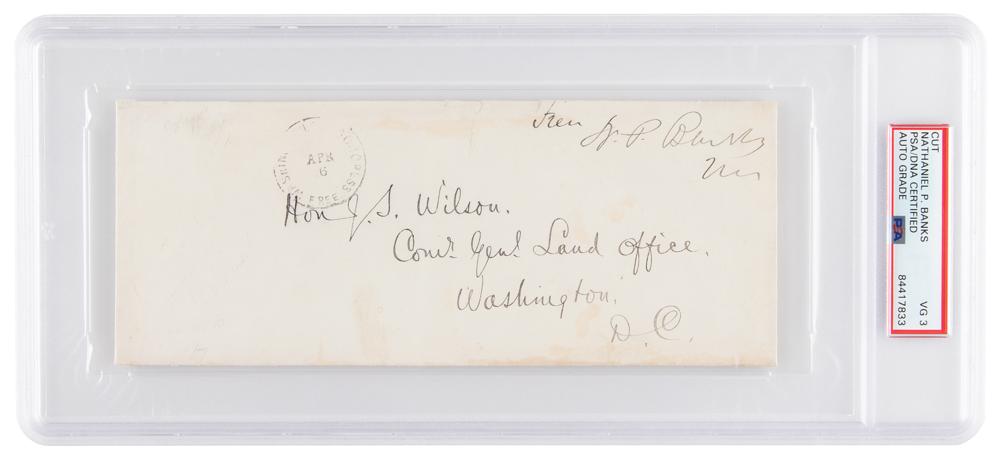 Free
N. P. Banks
M.C.
APR
6
FREE
Hon J. S. Wilson.
Comr Genl Land Office.
Washington.
D. C.
CUT
NATHANIEL P. BANKS
PSA/DNA CERTIFIED
AUTO GRADE
VG 3
PSA
84417833